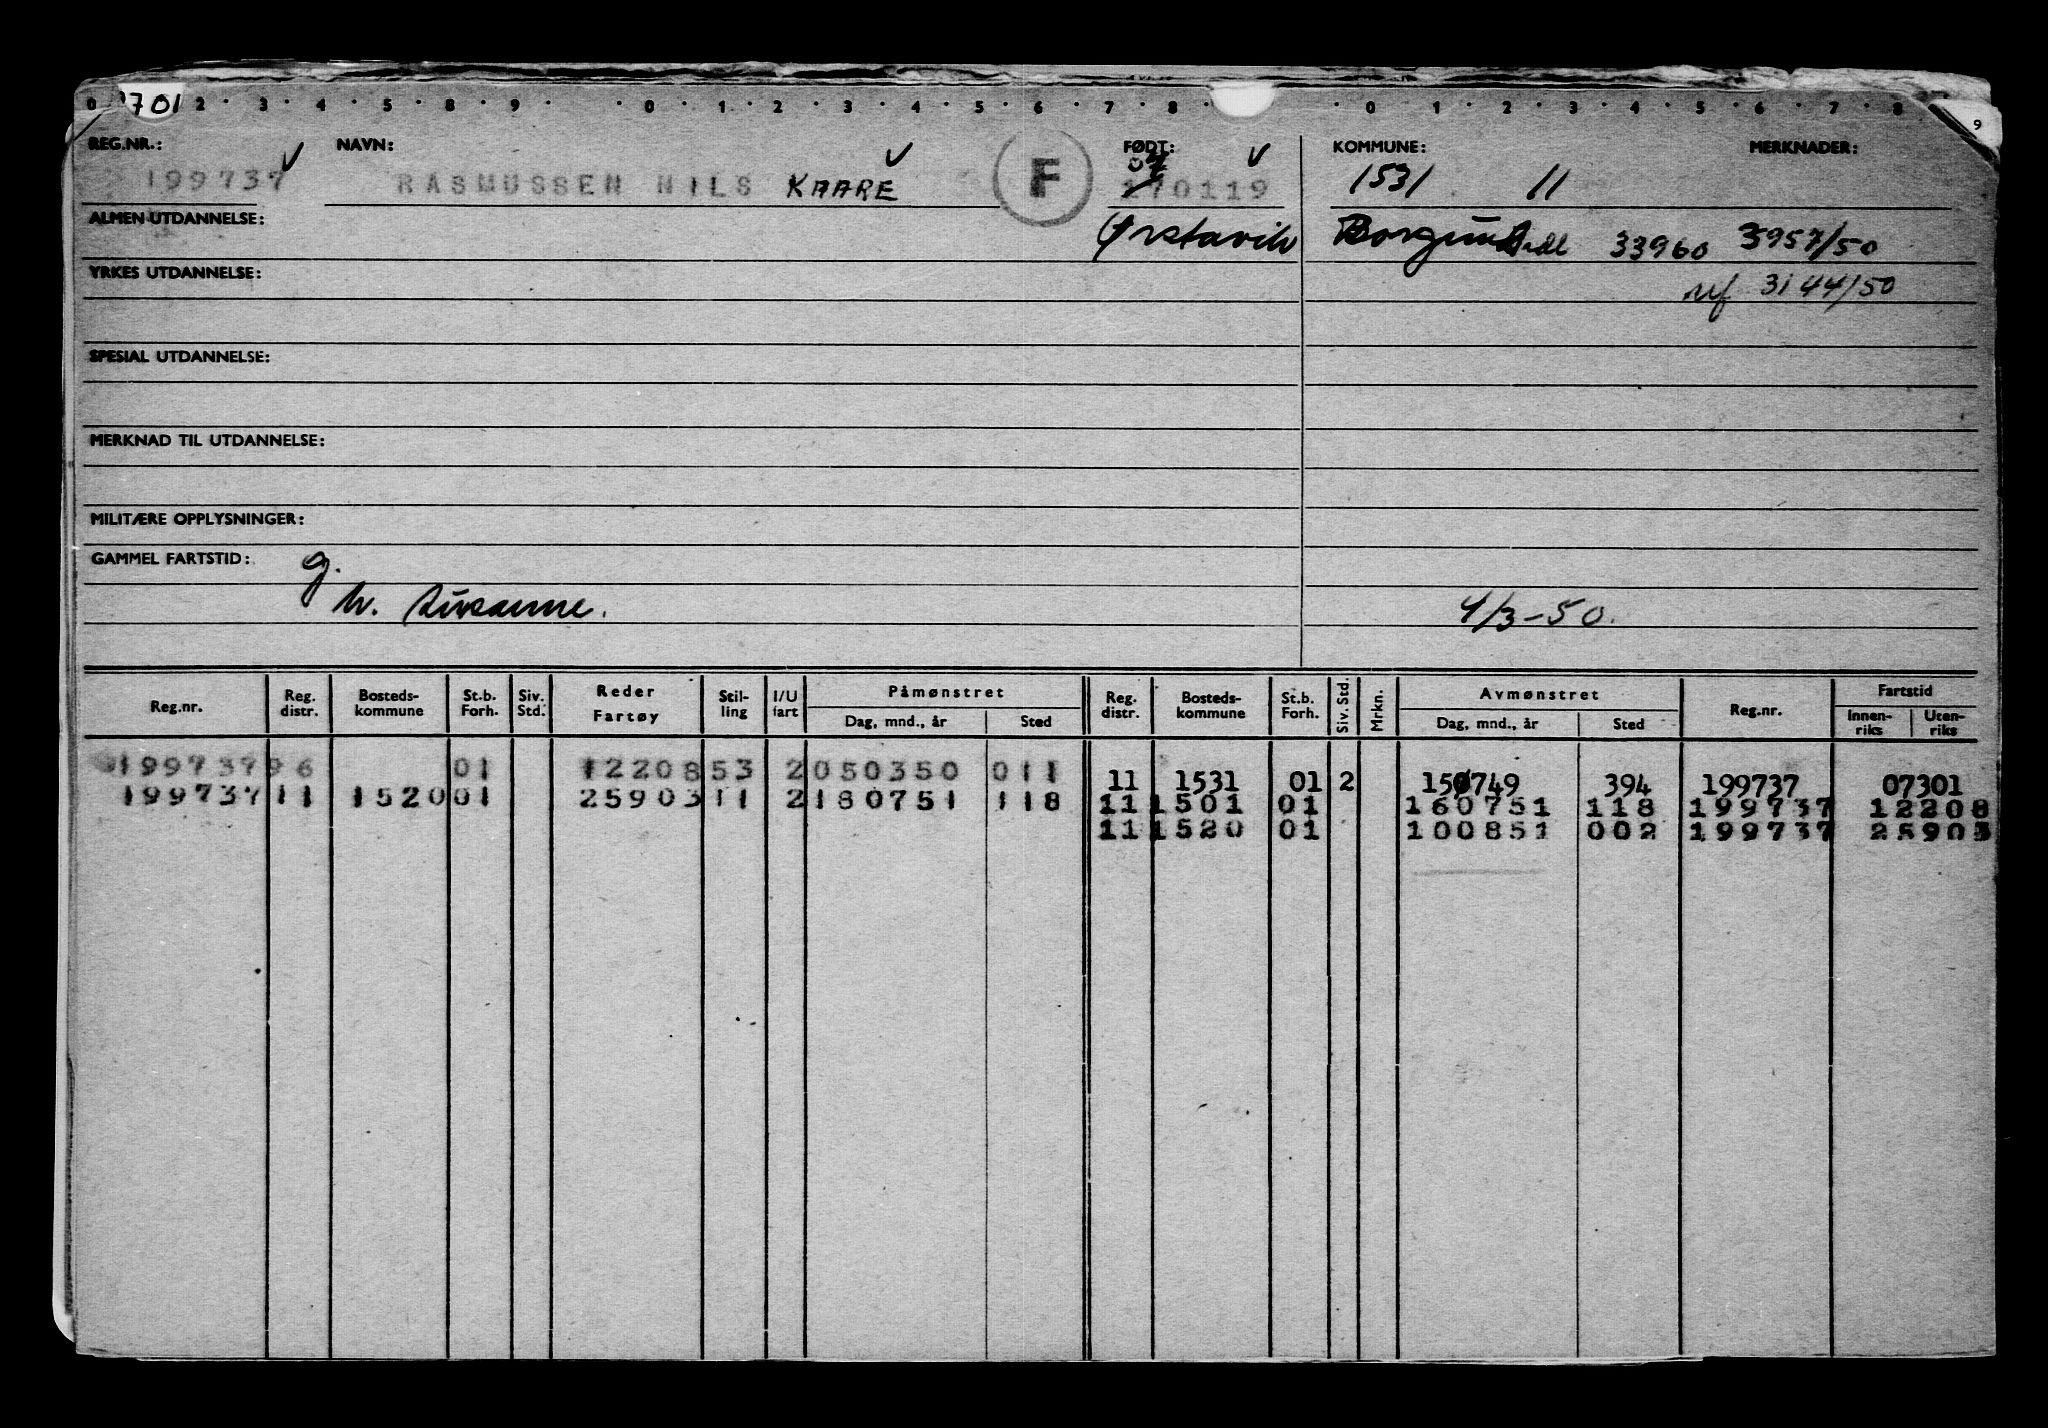 701 2 · 3 · 4 · 5 · 8 · 9 · 0 · 1 · 2 · 3 · 4 · 5 · 6 · 7 · 8 · 0 · 1 · 2 · 3 · 4 · 5 · 6 · 7 · 8 9
REG.NR.: NAVN: FØDT: KOMMUNE: MERKNADER:
199737 RASMUSSEN NILS KAARE F 170119 1531 11
ALMEN UTDANNELSE: Ørstavik Borgund 33960 3957/50
YRKES UTDANNELSE: 3144/50
SPESIAL UTDANNELSE:
MERKNAD TIL UTDANNELSE:
MILITÆRE OPPLYSNINGER:
GAMMEL FARTSTID: g.
h. Susanne. 4/3-50.
Reg.nr. Reg. distr. Bosteds-kommune St.b. Forh. Siv. Std. Reder Fartøy Stil-ling I/U fart Påmønstret Dag, mnd., år Sted Reg. distr. Bosteds-kommune St.b. Forh. Siv. Std. Mrkn. Avmønstret Dag, mnd., år Sted Reg.nr. Fartstid Innen-riks Uten-riks
199737 96 01 12208 53 2 050350 011 11 1531 01 2 150749 394 199737 07301
199737 11 1520 01 25903 11 2 180751 118 11 1501 01 160751 118 199737 12208
11 1520 01 100851 002 199737 25903